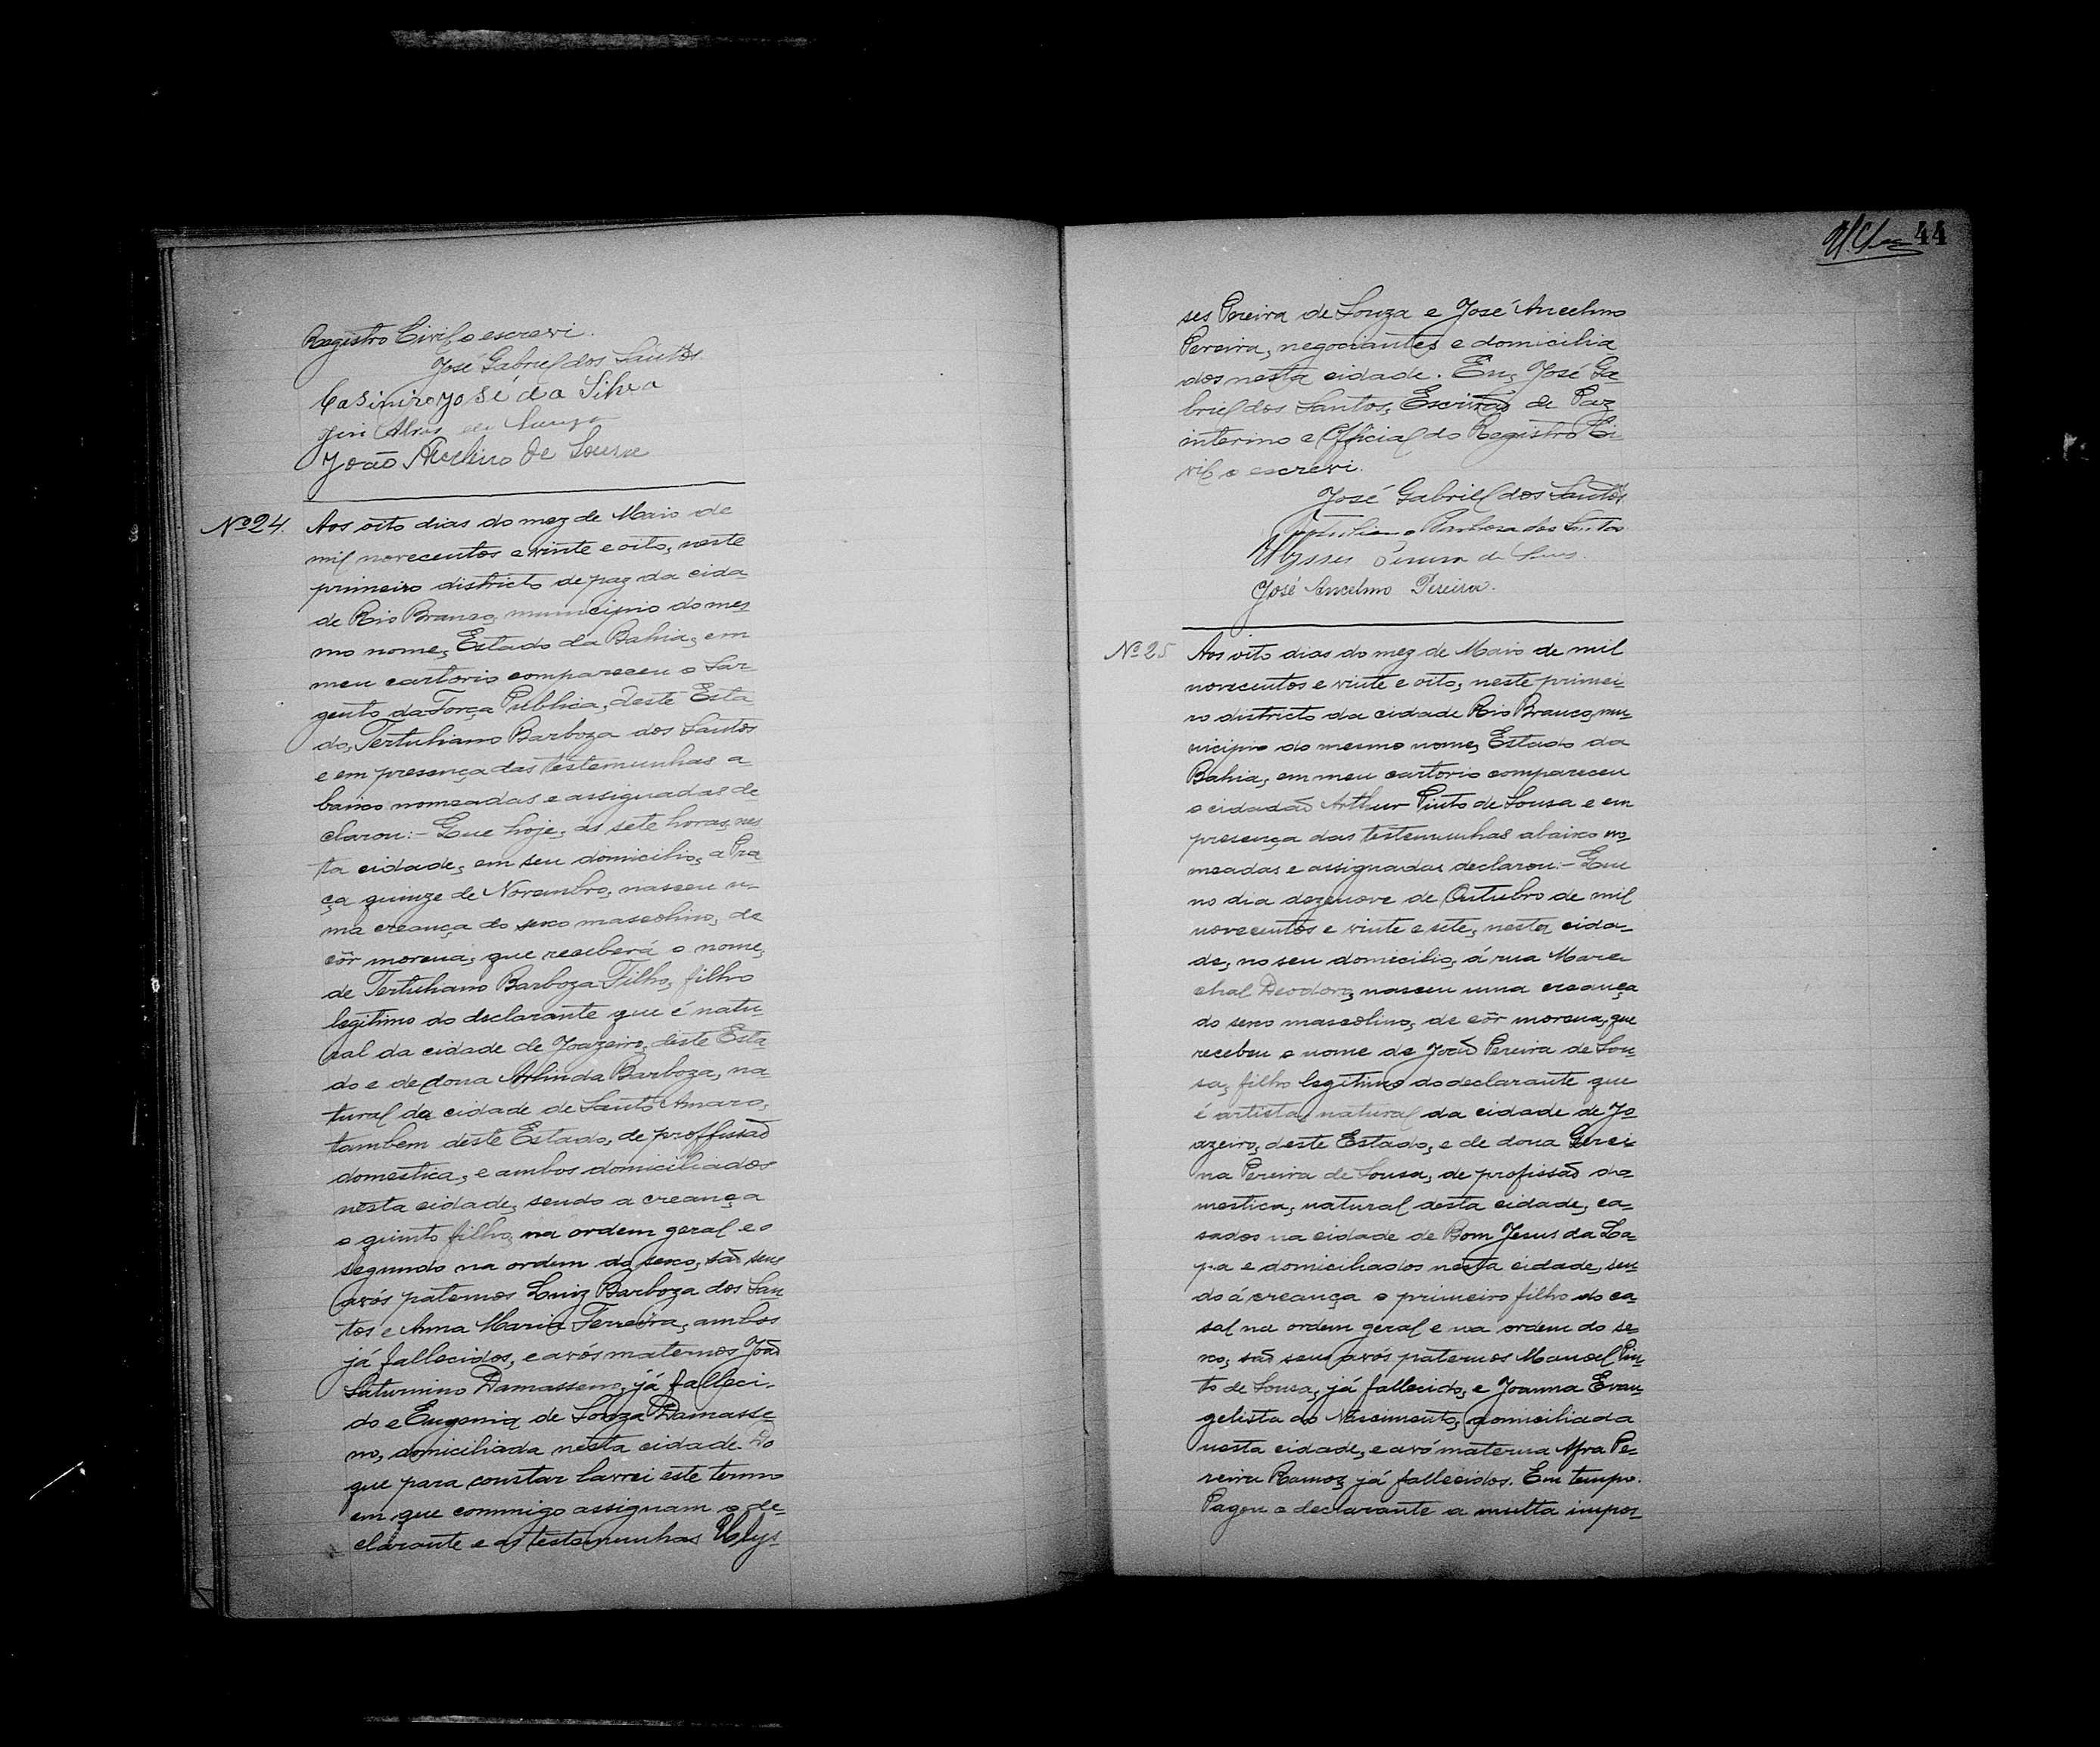 Registro Civil o escrevi.
José Gabriel dos Santos
Casimiro José da Silva
Alves de
João Avelino de Souza
Nº 24. Aos oito dias do mez de Maio de
mil novecentos e vinte e oito, neste
primeiro districto de paz da cida-
de Rio Branco, municipio do mes
mo nome, Estado da Bahia, em
meu cartorio compareceu o Sar-
gento da Força Publica, deste Esta
do, Tertuliano Barboza dos Santos
e em presença das testemunhas a-
baixo nomeadas e assignadas de-
clarou:- Que hoje, ás sete horas, nes
ta cidade, em seu domicilio, a Pra
ça quinze de Novembro, nasceu u-
ma creança do sexo mascolino, de
côr morena, que receberá o nome,
de Tertuliano Barboza Filho, filho
legitimo do declarante que é natu-
ral da cidade de Joazeiro, deste Esta
do e de dona Arlinda Barboza, na-
tural da cidade de Santo Amaro,
tambem deste Estado, de proffissão
domestica, e ambos domiciliados
nesta cidade, sendo a creança
o quinto filho, na ordem geral e o
segundo na ordem do sexo, são seus
avós paternos Luiz Barboza dos San
tos e Anna Maria Ferreira, ambos
já fallecidos, e avós maternos João
Saturnino Damasseno, já falleci-
do e Eugenia de Souza Damasse
no, domiciliada nesta cidade. Do
que para constar lavrei este termo
em que commigo assignam o de-
clarante e as testemunhas Ulys-
44
ses Pereira de Souza e José Ancelmo
Pereira, negociantes e domicilia
dos nesta cidade. Eu, José Ga
briel dos Santos, Escrivão de Paz
interino e Official do Registro Ci
vil o escrevi.
José Gabriel dos Santos
Tertuliano Barbosa dos Santos
Ulysses Pereira de Souza
José Ancelmo Pereira.
Nº 25 Aos oito dias do mez de Maio de mil
novecentos e vinte e oito, neste primei-
ro districto da cidade Rio Branco, mu-
nicipio do mesmo nome, Estado da
Bahia, em meu cartorio compareceu
o cidadão Arthur Pinto de Sousa e em
presença das testemunhas abaixo no-
meadas e assignadas declarou:- Que
no dia dezenove de Outubro de mil
novecentos e vinte e sete, nesta cida-
de, no seu domicilio, á rua Mare-
chal Deodoro, nasceu uma creança
do sexo mascolino, de côr morena, que
recebeu o nome de João Pereira de Sou-
sa, filho legitimo do declarante que
é artista, natural da cidade de Jo
azeiro, deste Estado, e de dona
na Pereira de Sousa, de profissão do-
mestica, natural desta cidade, ca-
sados na cidade de Bom Jesus da La-
pa e domiciliados nesta cidade, sen
do á creança o primeiro filho do ca-
sal na ordem geral e na ordem do se-
xo, são seus avós paternos Manoel Pin
to de Sousa, já fallecido, e Joanna Evan
gelista do Nascimento, domiciliada
nesta cidade, e avó materna Afra Pe-
reira Ramos, já fallecidos. Em tempo.
Pagou o declarante a multa impos-